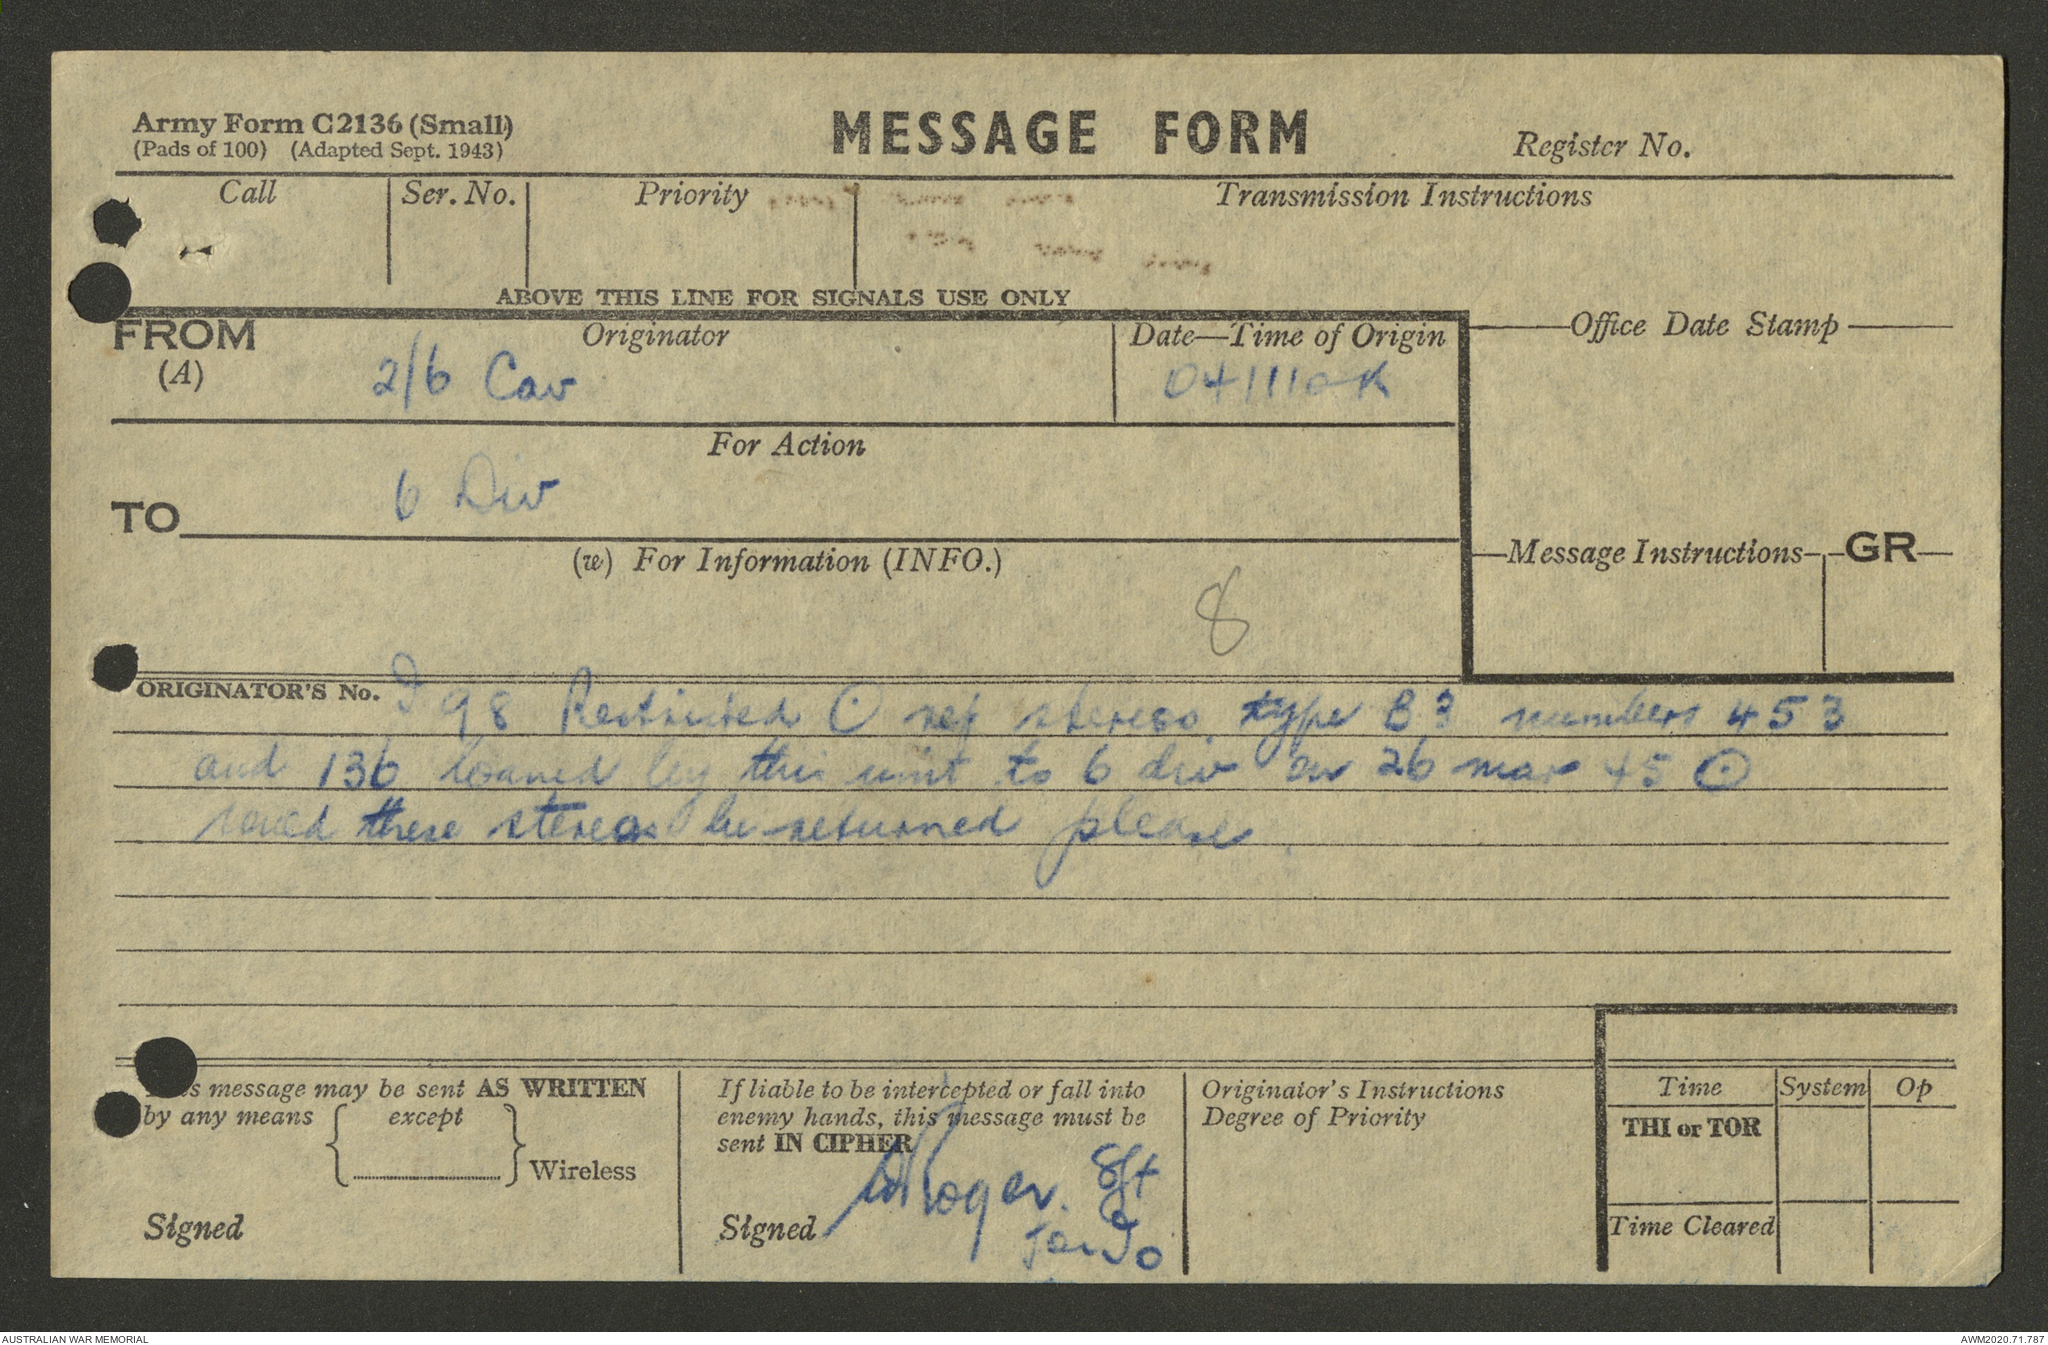 Army Form C2136 (Small)
(Pads of 100) (Adapted Sept. 1943)
MESSAGE FORM
Register No.
Call
Ser. No.
Priority
Transmission Instructions
ABOVE THIS LINE FOR SIGNALS USE ONLY
FROM
(A)
Originator
2/6 Cav
Date—Time of Origin
041110K
Office Date Stamp
For Action
6 Div
TO
(w) For Information (INFO.)
8
Message Instructions
GR
ORIGINATOR'S No.
I 98 Restricted ⊙ ref stereos type B3 numbers 453
and 136 loaned by this unit to 6 div on 26 mar 45 ⊙
these stereos be returned please
This message may be sent AS WRITTEN
by any means
except
Wireless
Signed
If liable to be intercepted or fall into
enemy hands, this message must be
sent IN CIPHER
Signed
Originator's Instructions
Degree of Priority
Time
System
Op
THI or TOR
Time Cleared
AUSTRALIAN WAR MEMORIAL
AWM2020.71.787